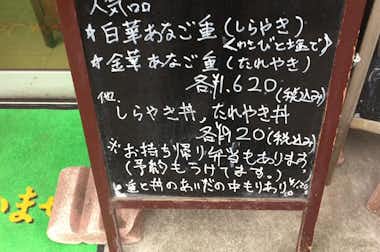 人気品
★白華あなご重(しらやき)
<わさびと塩で>
★金華あなご重(たれやき)
各¥1.620(税込み)
他、
しらやき丼,たれやき丼
各¥920(税込み)
※お持ち帰り弁当もあります
(予約もうけてます。)
重と丼のあいだの中もりあり
ませ